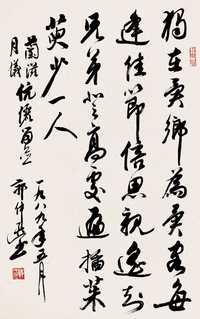 獨在異鄉為異客每
逢佳節倍思親遙知
兄弟登高處遍插茱
萸少一人
蘭滋
月儀伉儷留念
一九八九年五月
郭仲選書